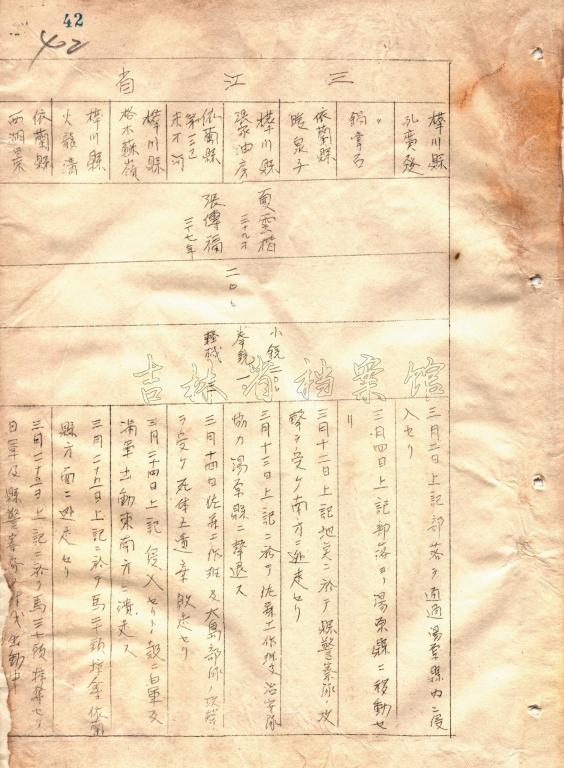 42
402
三江省
樺川縣
孔廣發
〃
鍋掌石
依蘭縣
暖泉子
樺川縣
張家油房
依蘭縣
第三区
来才河
樺川縣
格木蘇嶺
樺川縣
火龍溝
依蘭縣
西湖景
夏雲楷
三十九才
張傳福
三十七年
二〇〇
小銃
拳銃
軽機
吉林省档案馆
三月二日上記部落ヲ通過湯原縣内ニ侵
入セリ
三月四日上記部落ヨリ湯原縣ニ移動セ
リ
三月十二日上記地点ニ於テ縣警察隊ノ攻
撃ヲ受ケ南方ニ逃走セリ
三月十三日上記ニ於テ佐藤工作班及治安隊
協力湯原縣ニ撃退ス
三月十四日佐藤工作班及大島部隊ノ攻撃
ヲ受ケ死体五遺棄敗走セリ
三月二十四日上記侵入セリトノ報ニ日軍及
満軍出動東南方ニ潰走ス
三月二十五日上記ニ於テ馬二十頭掠奪依蘭
縣方面ニ逃走セリ
三月二十五日上記ニ於テ馬三十頭掠奪セリ
日軍及縣警察隊出動中